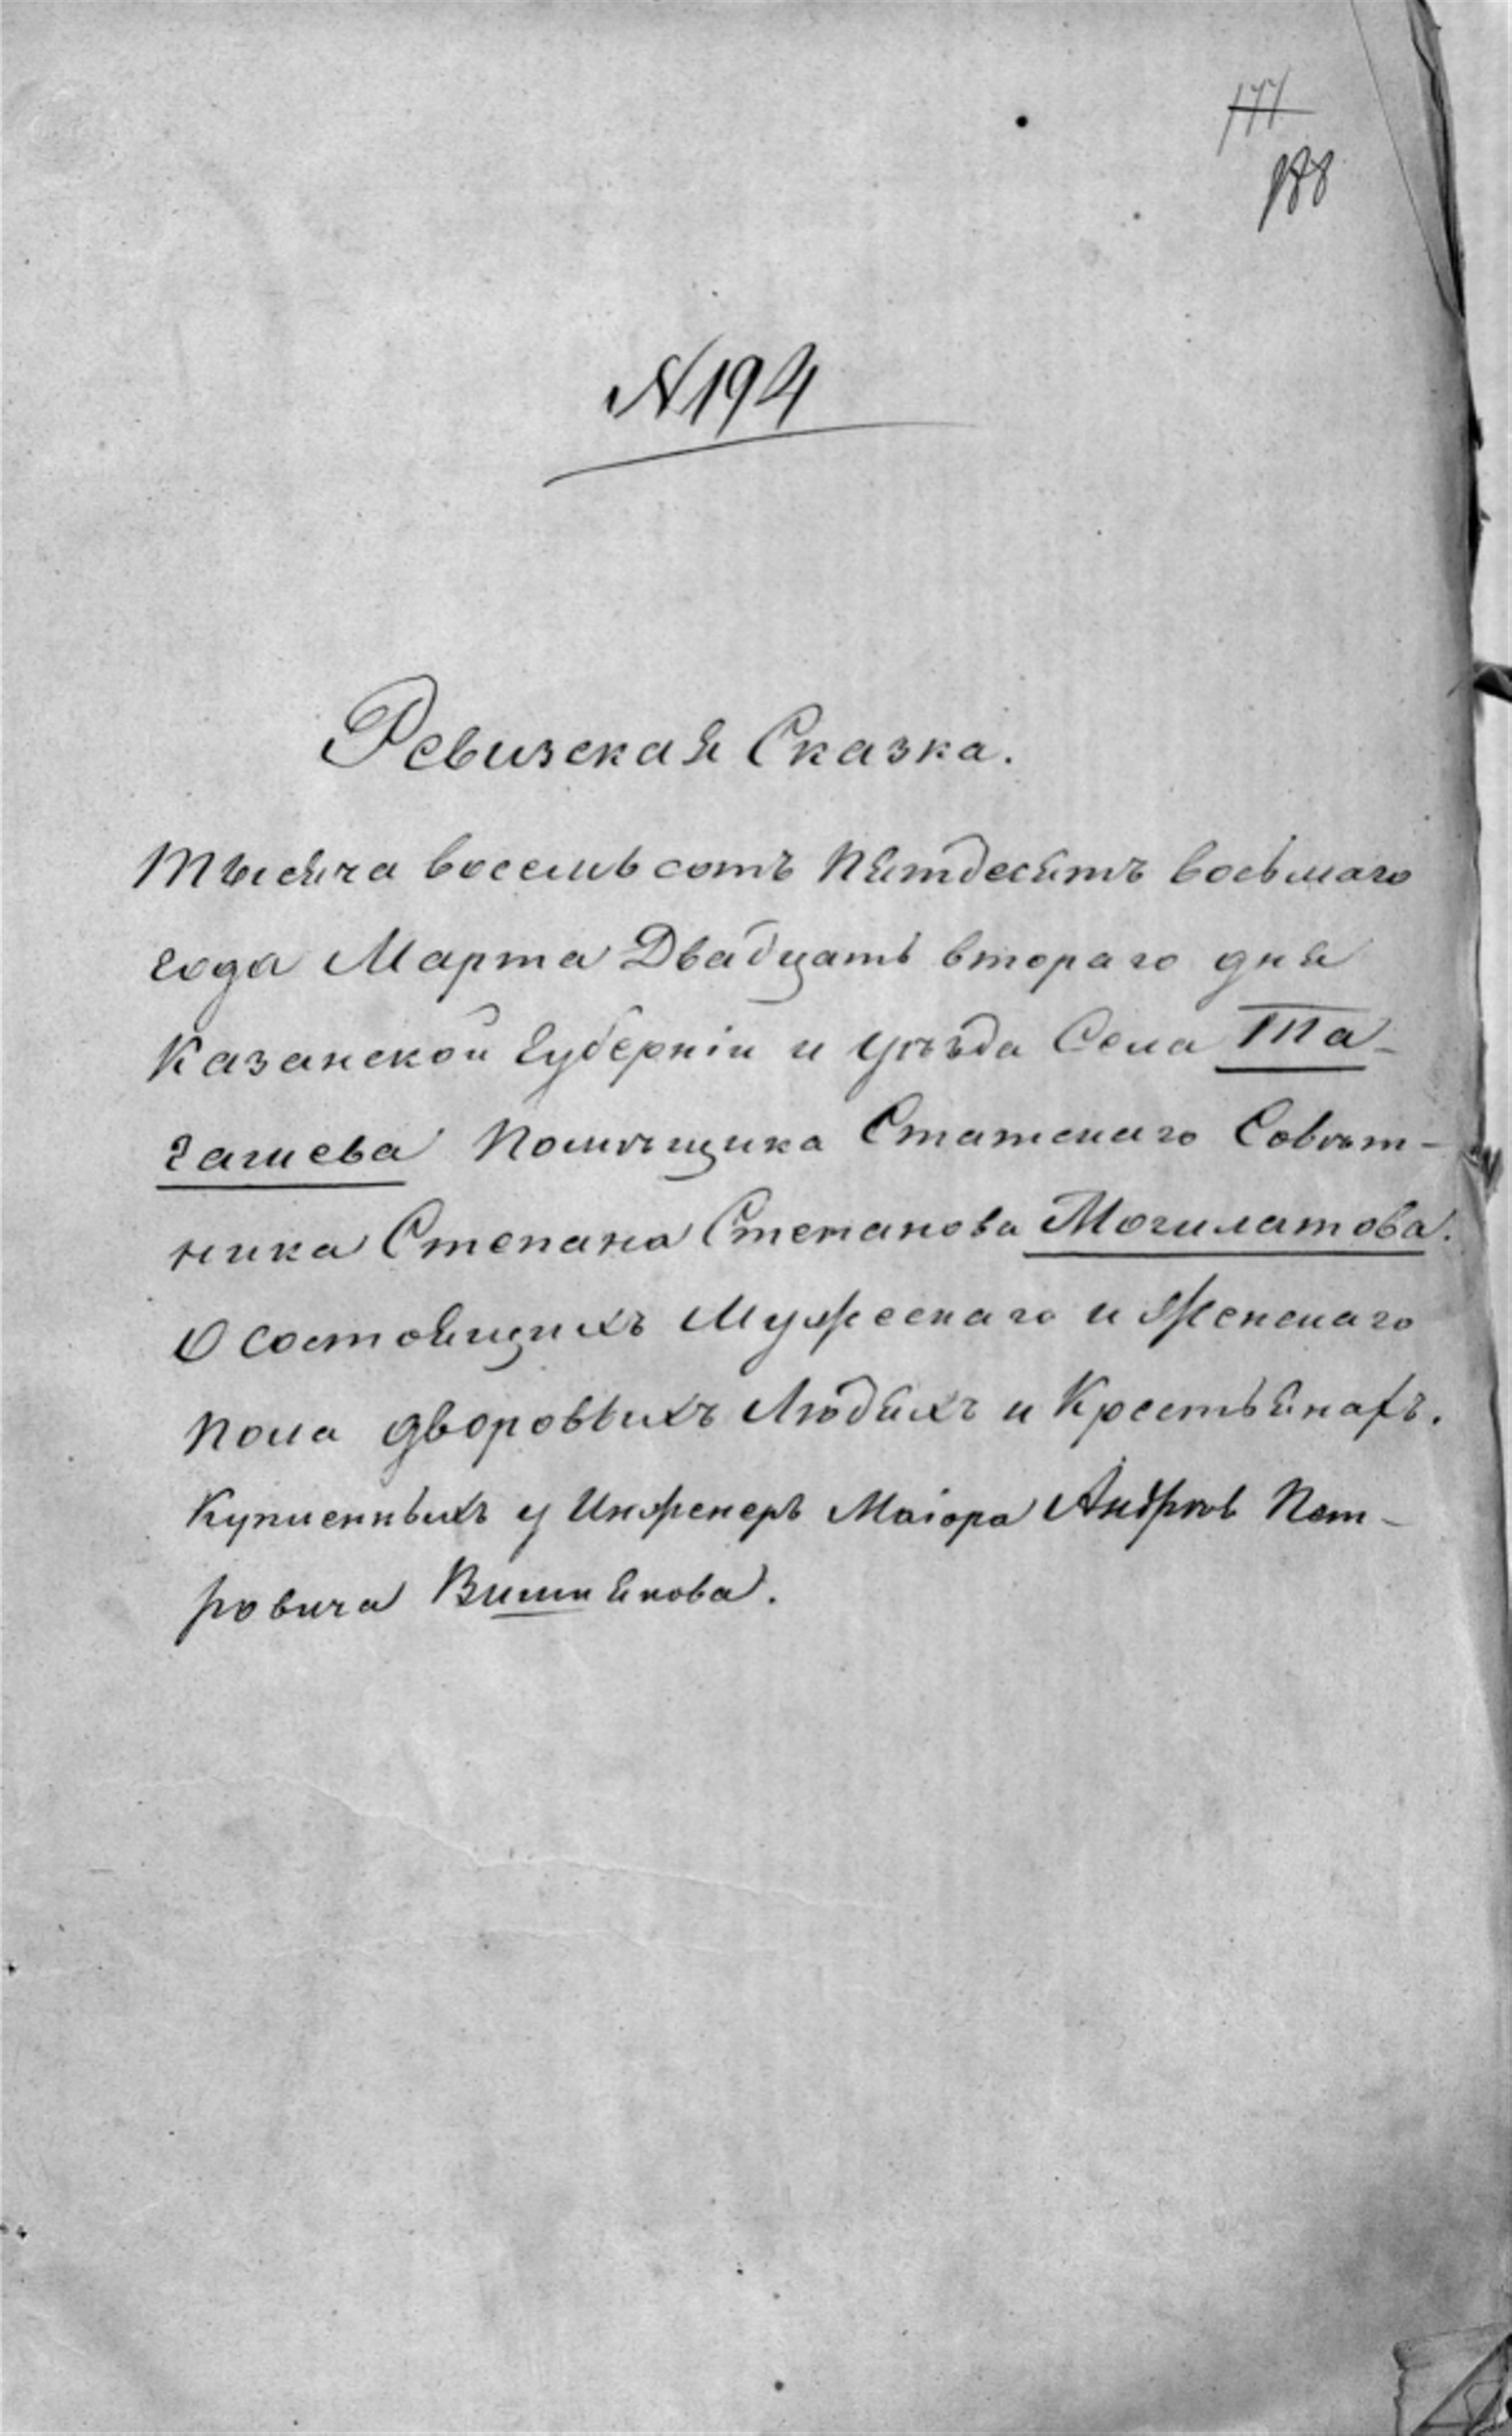 177
188
N 194
Ревизская Сказка.
Тысяча восемьсотъ пятдесятъ восьмаго
года Марта Двадцать втораго дня
Казанской Губерніи и уѣзда Села Та-
гашева Помѣщика Статскаго Совѣт-
ника Степана Степанова Могилатова.
О состоящихъ Мужескаго и Женскаго
пола дворовыхъ Людяхъ и Крестьянахъ.
Купленныхъ у Инженеръ Маіора Андрѣя Пет-
ровича Вишнякова.